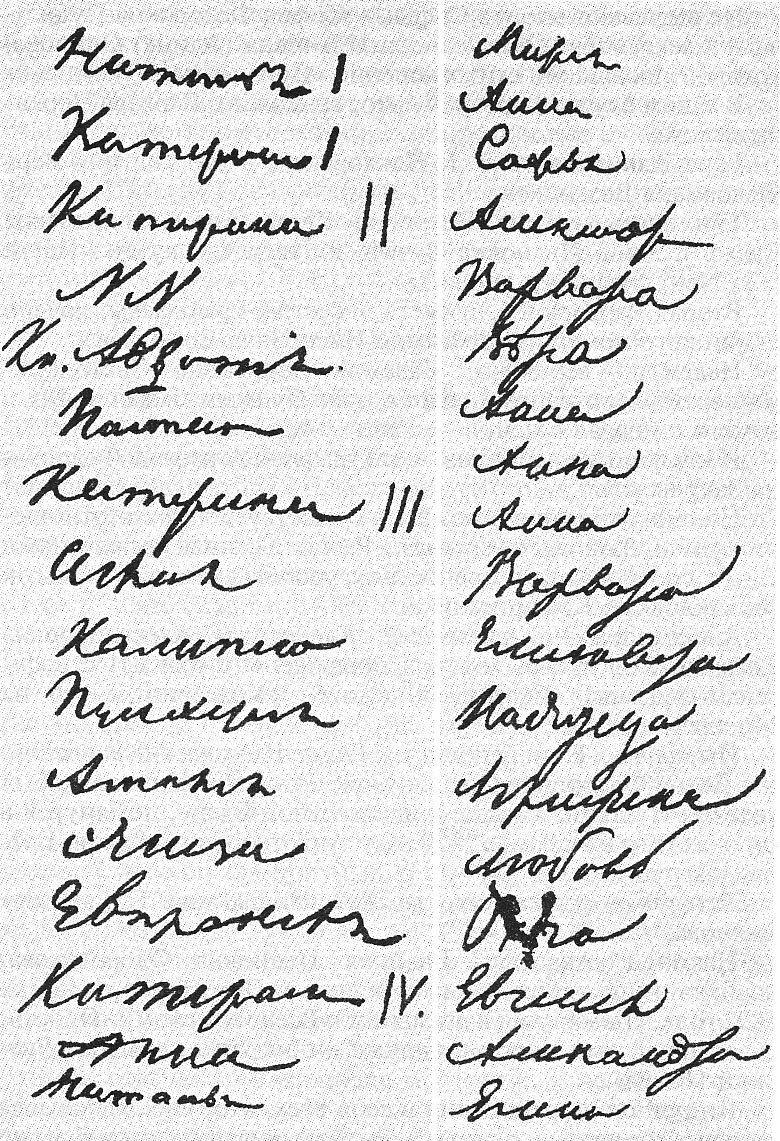 Наталья I
Катерина I
Катерина II
NN
Кн. Авдотия
Настасья
Катерина III
Аглая
Калипсо
Пульхерия
Амалия
Элиза
Евпраксея
Катерина IV.
Анна
Наталья
Мария
Анна
Софья
Александра
Варвара
Вѣра
Анна
Анна
Анна
Варвара
Елизавета
Надежда
Аграфена
Любовь
Ольга
Евгения
Александра
Елена